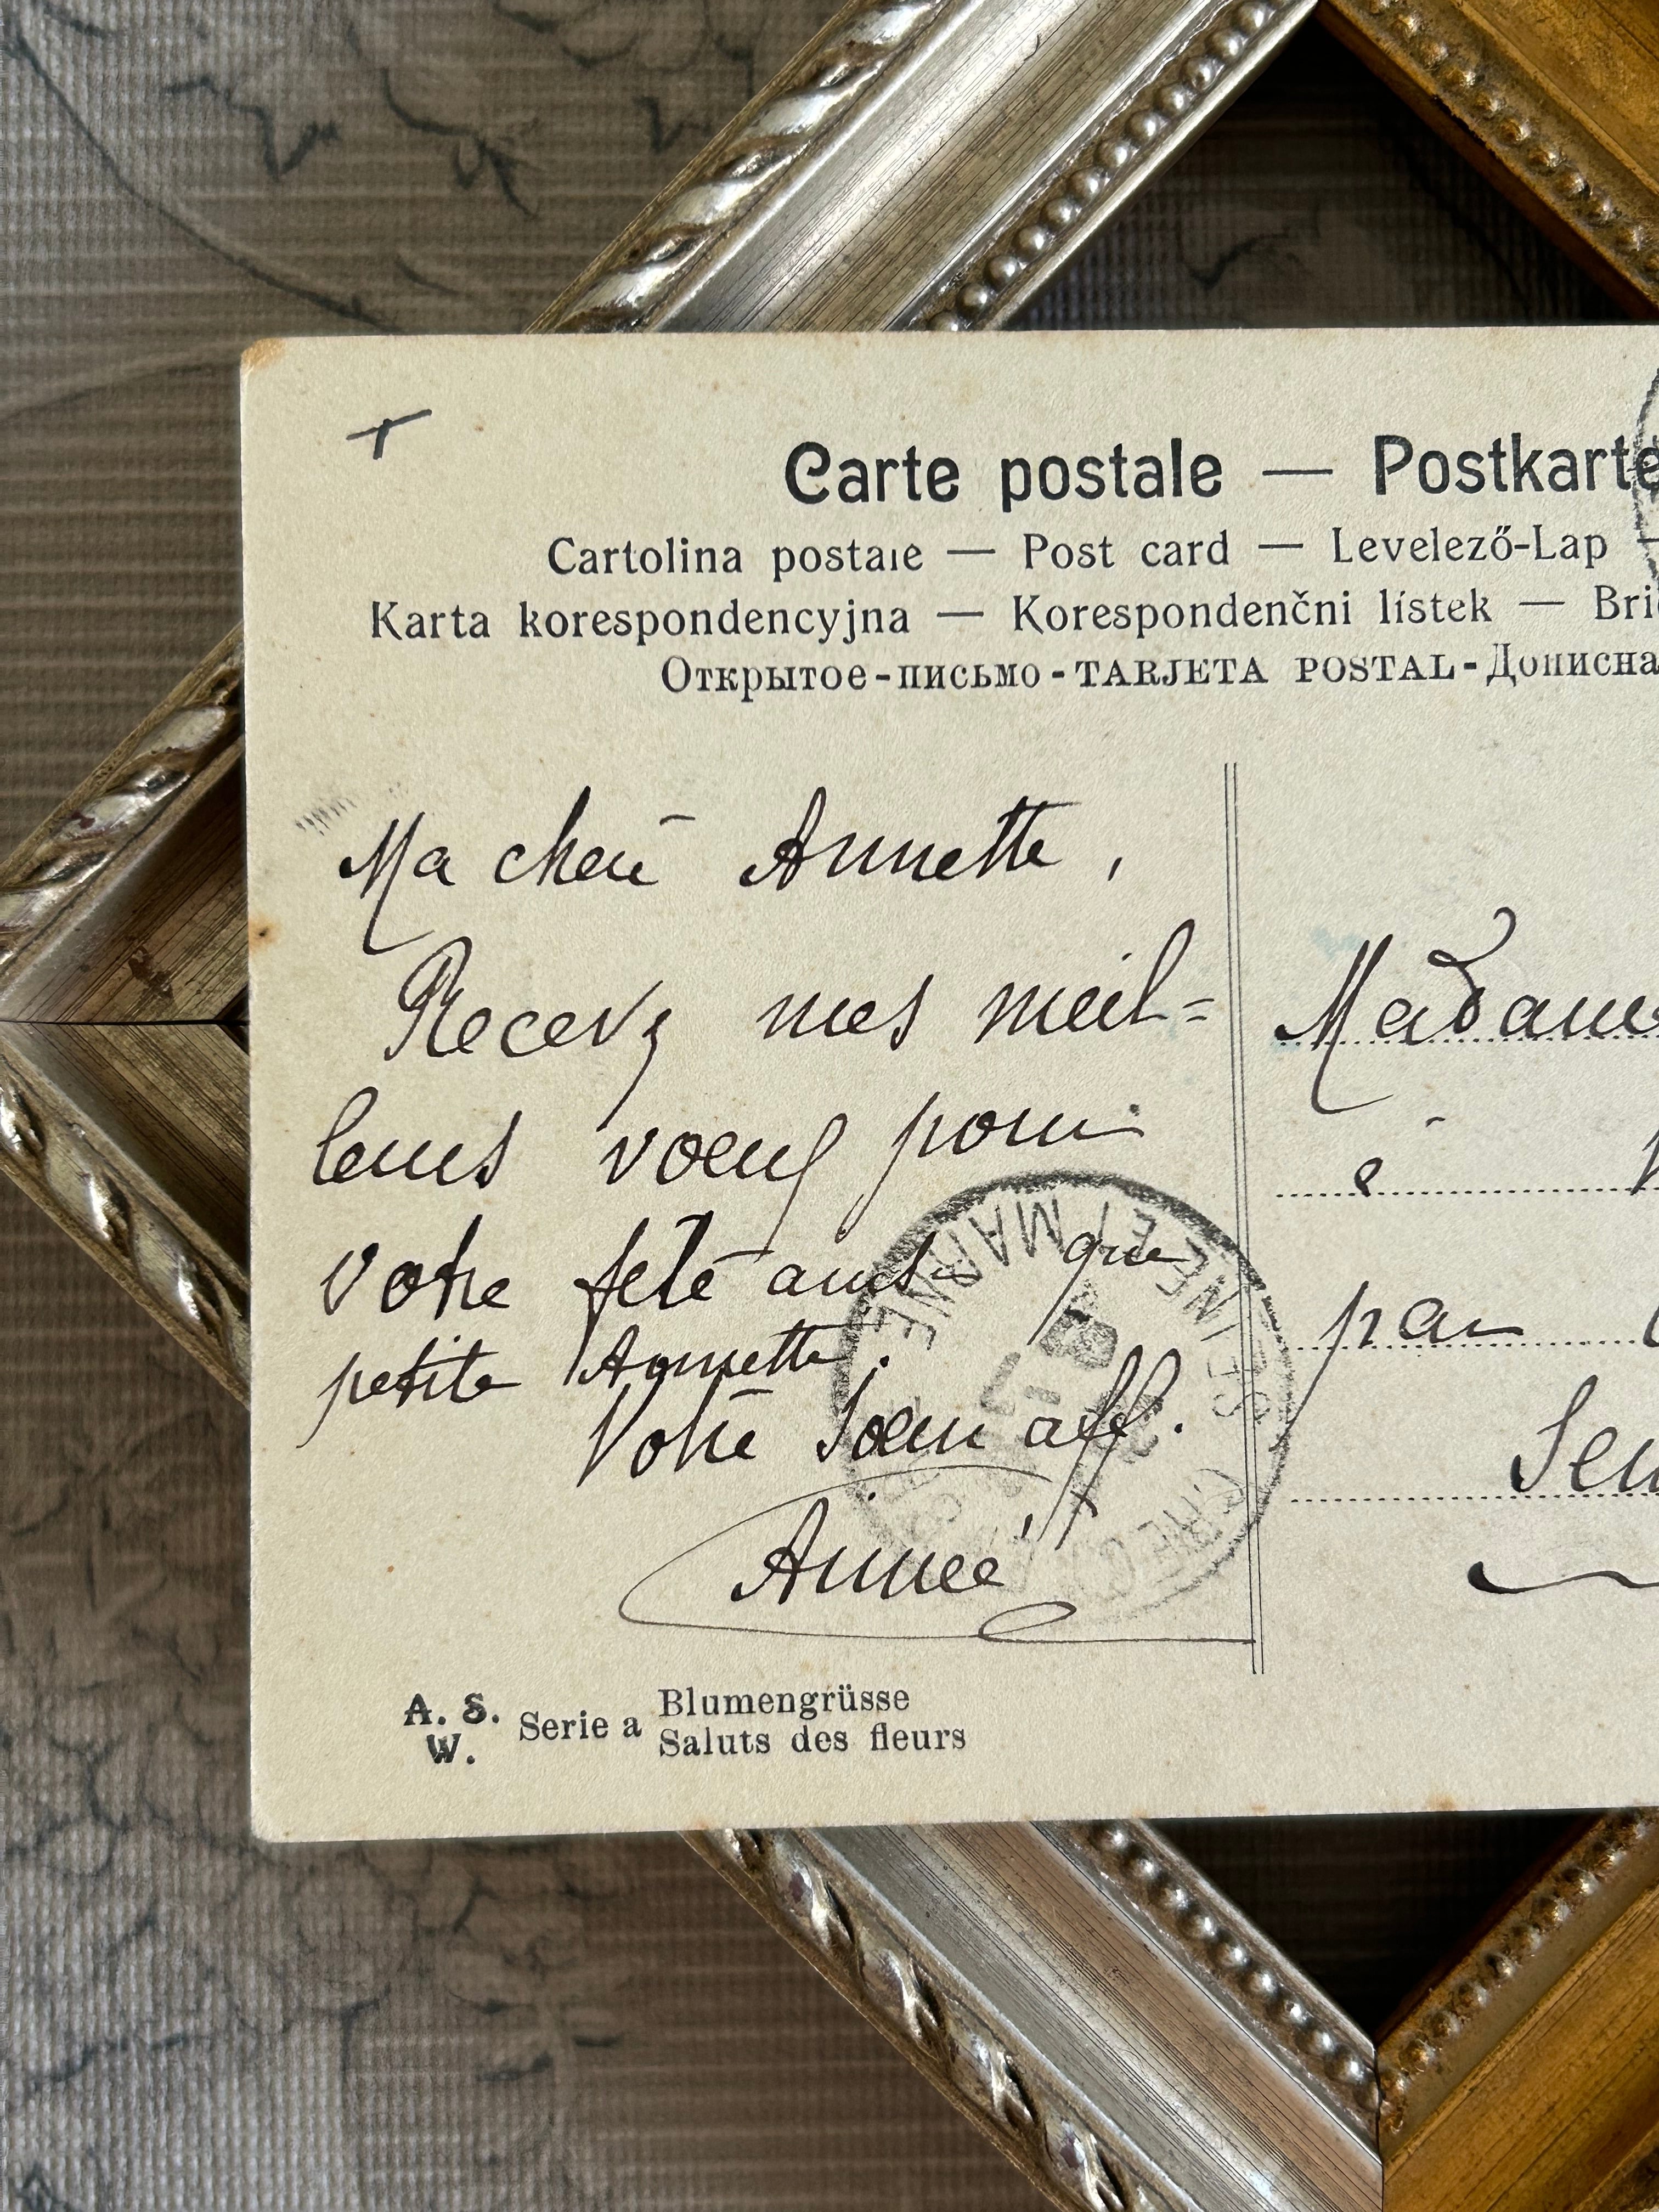 Carte postale — Postkarte
Cartolina postale — Post card — Levelező-Lap —
Karta korespondencyjna — Korespondenčni lístek — Bri
Открытое-письмо-TARJETA POSTAL-Дописна
Ma chère Annette,
Recevz mes meil=
leurs voeux pour
votre fête aussi que
petite Annette.
Votre Soeur aff.
Aimée
A. S. W. Serie a Blumengrüsse
Saluts des fleurs
Madame
à
par
SEINE ET MARNE